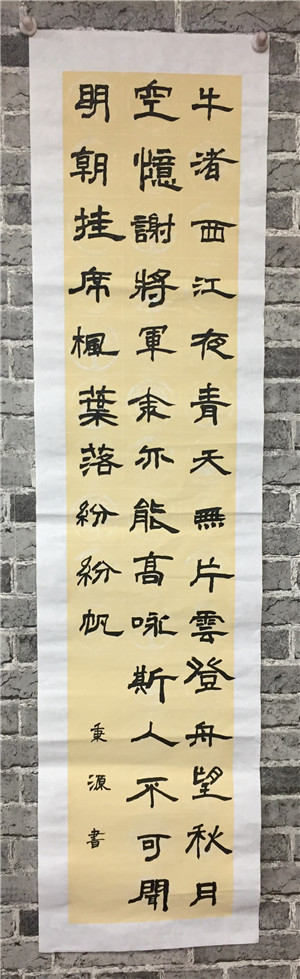 牛渚西江夜青天無片雲登舟望秋月
空憶謝將軍余亦能高咏斯人不可聞
明朝挂席楓葉落紛紛帆
秉源書